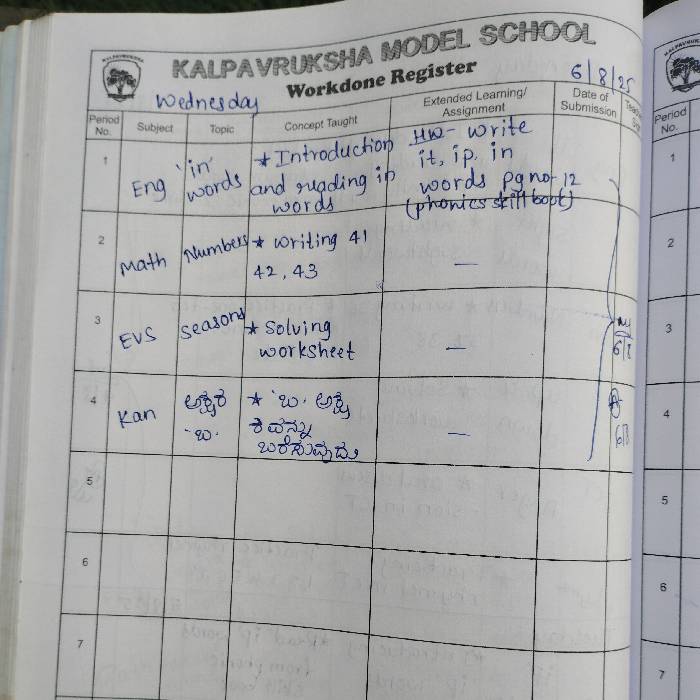 KALPAVRUKSHA MODEL SCHOOL
Workdone Register
Wednesday
6/8/25
Period No.
Subject
Topic
Concept Taught
Extended Learning/ Assignment
Date of Submission
1
Eng
'in' words
* Introduction
and reading in
words
HW- write
it, ip, in
words pg no- 12
(phonics skill book)
2
Math
Numbers
* writing 41
42, 43
—
3
EVS
seasons
* Solving
worksheet
—
6/8
4
Kan
ಅಕ್ಷರ
'ಬ'
* 'ಬ' ಅಕ್ಷ
ರವನ್ನು
ಬರೆಸುವುದು
—
6/8
5
6
7
Period No.
1
2
3
4
5
6
7